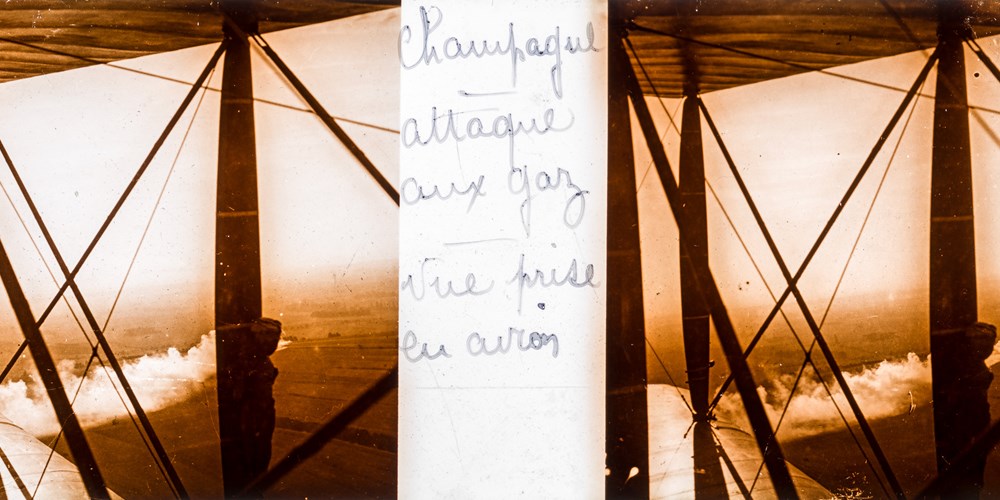 Champagne
attaque
aux gaz
Vue prise
en avion